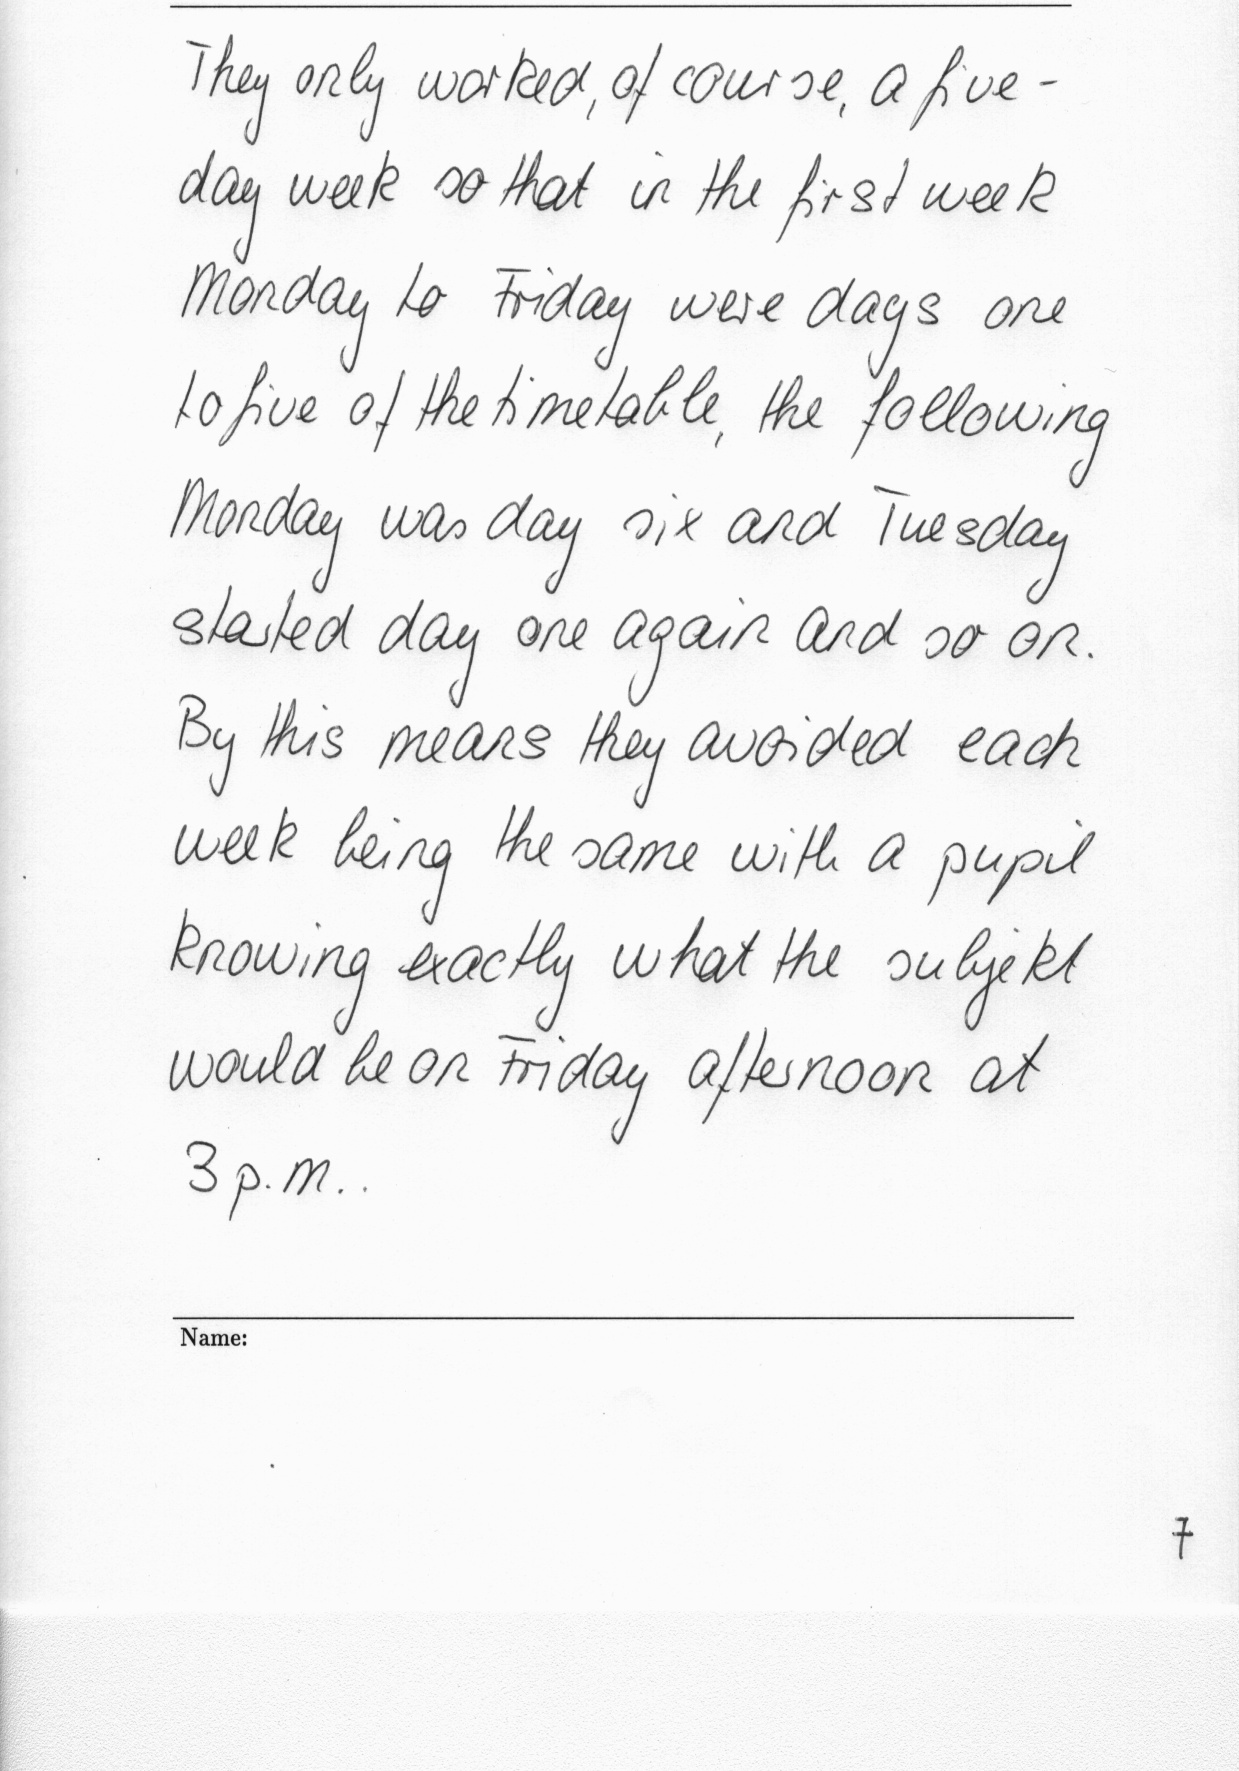 They only worked, of course, a five-
day week so that in the first week
Monday to Friday were days one
to five of the timetable, the following
Monday was day six and Tuesday
started day one again and so on.
By this means they avoided each
week being the same with a pupil
knowing exactly what the subjekt
would be on Friday afternoon at
3 p.m..
Name:
7